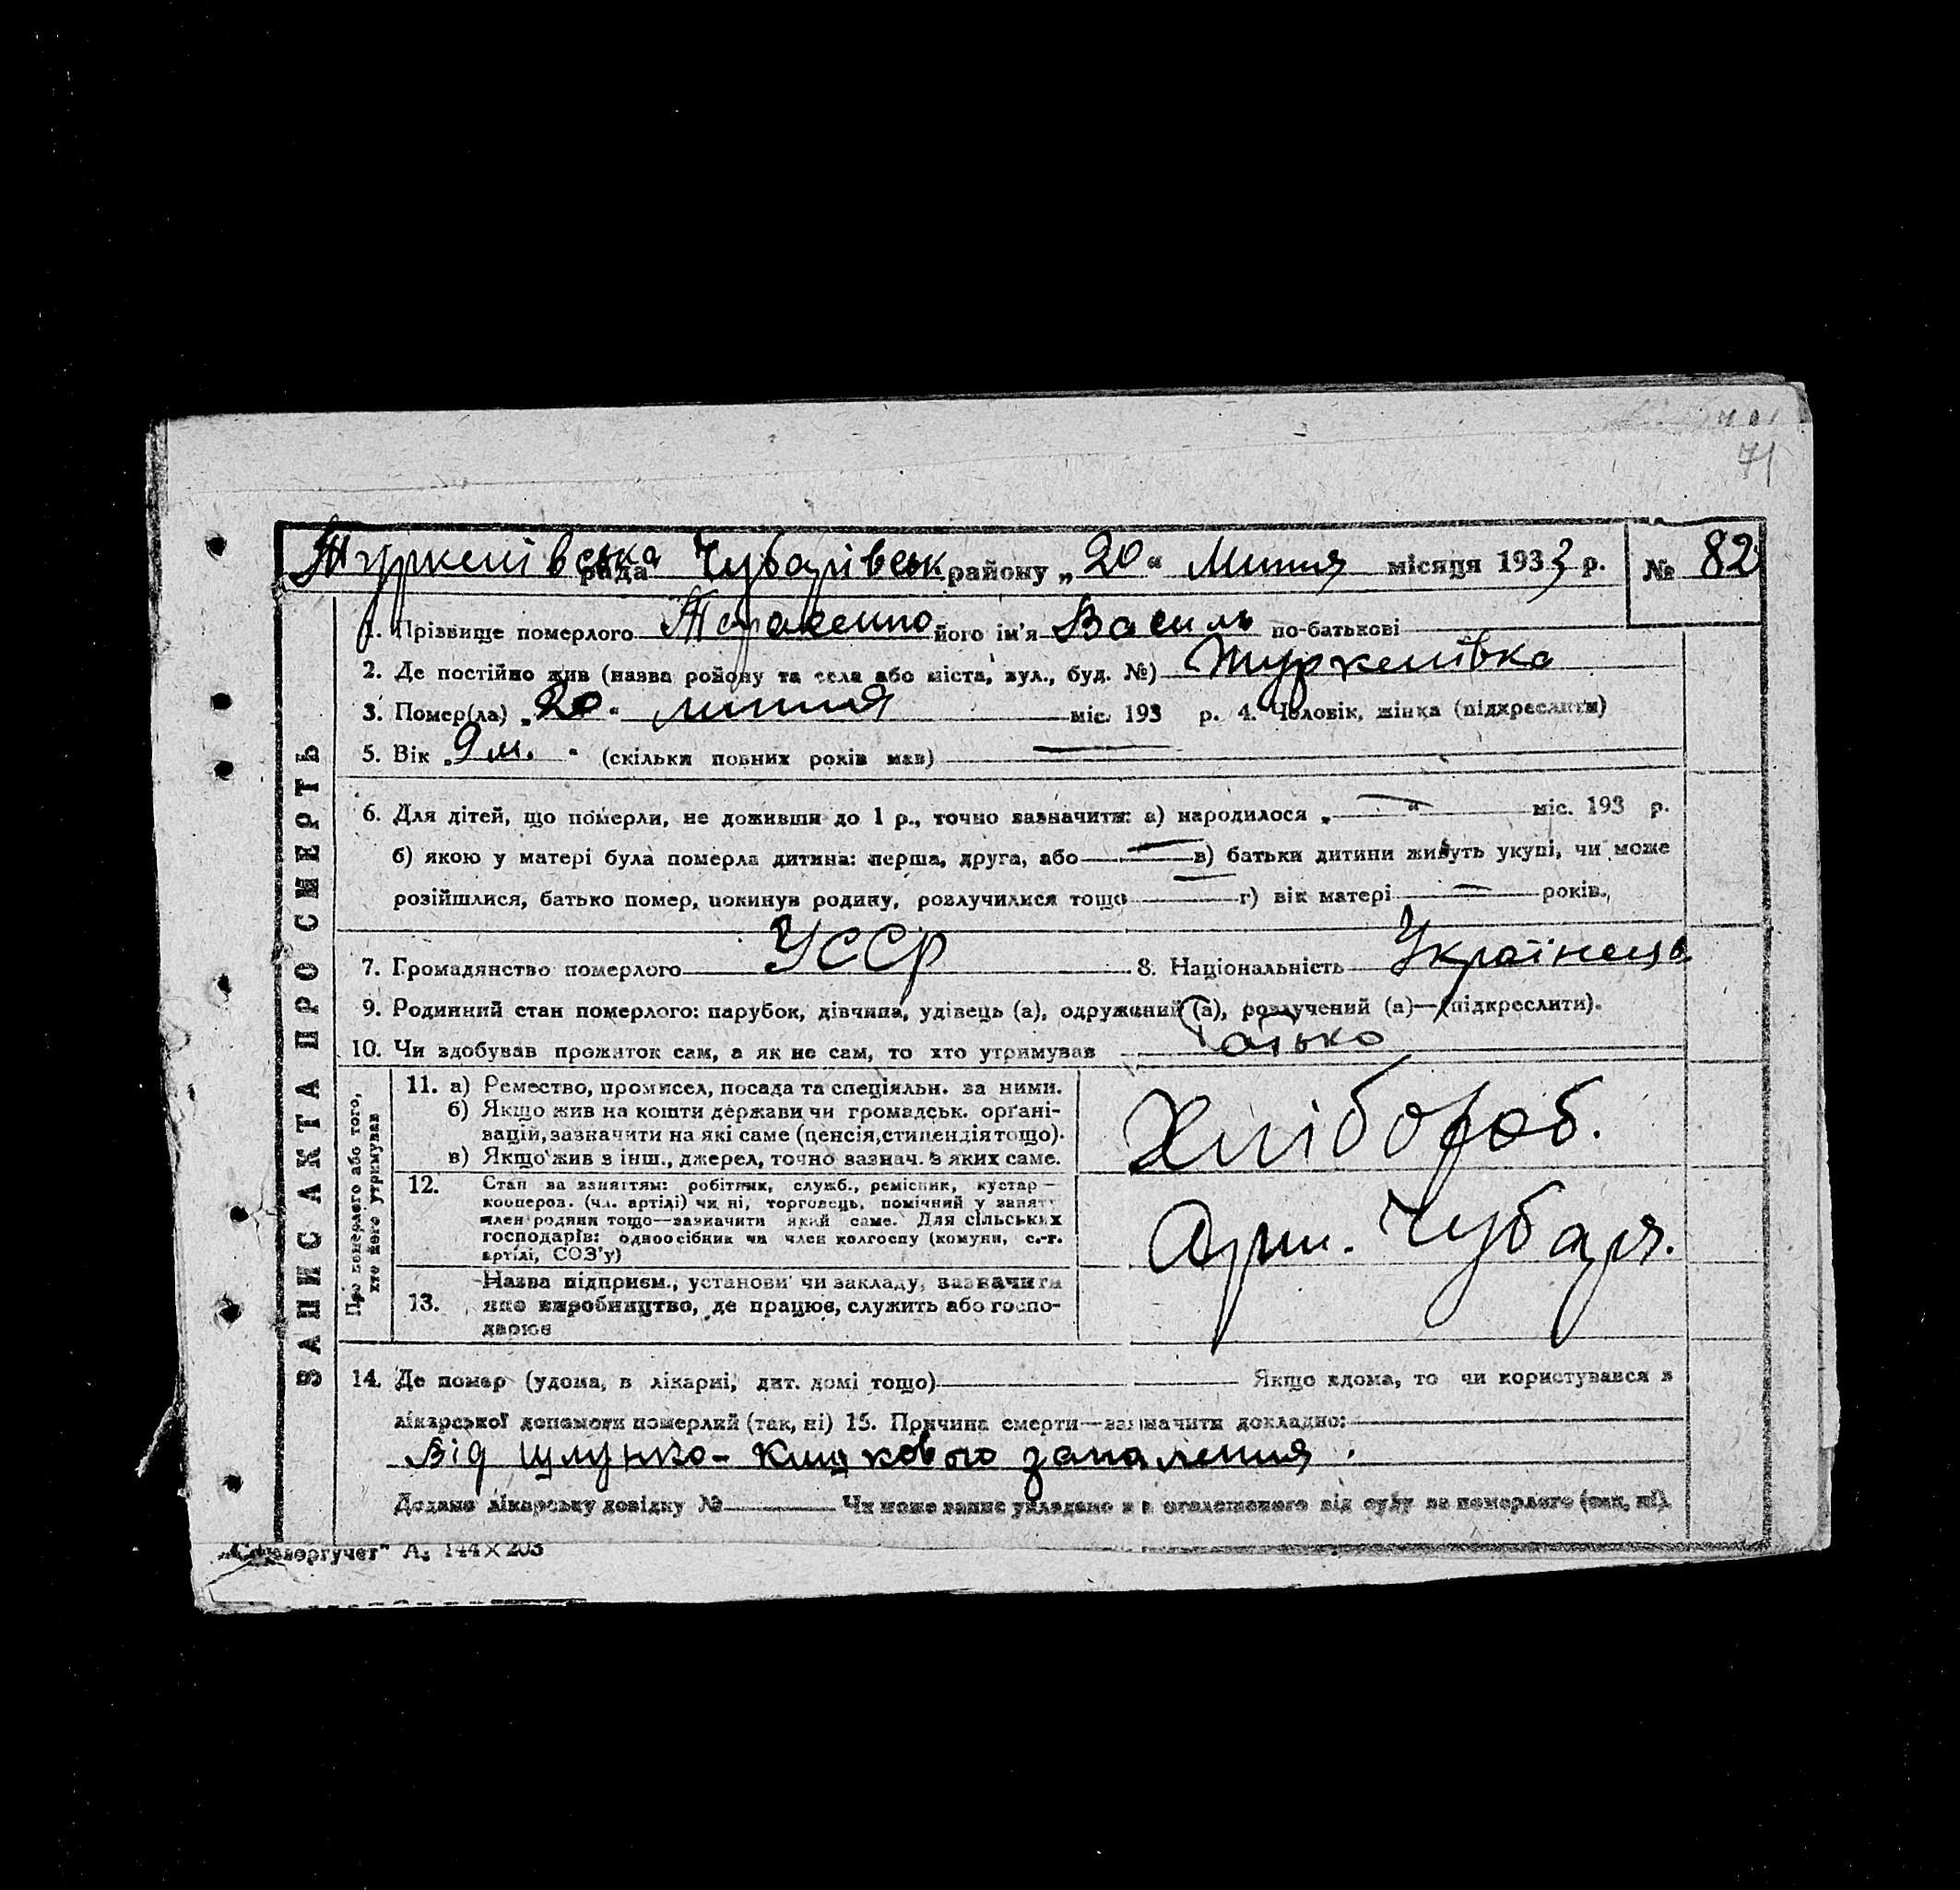 71
Туркенівська рада Чубарівськ району „20“ Липня місяця 1933 р. № 82
ЗАПИС АКТА ПРО СМЕРТЬ
1. Прізвище померлого Тарасенко його ім'я Василь по-батькові
2. Де постійно жив (назва ройону та села або міста, вул., буд. №) Туркенівка
3. Помер(ла) „20“ липня міс. 193 р. 4. Чоловік, жінка (підкреслити)
5. Вік „9 м.“ (скільки повних років мав)
6. Для дітей, що померли, не доживши до 1 р., точно зазначити: а) народилося „ “ міс. 193 р.
б) якою у матері була померла дитина: перша, друга, або в) батьки дитини живуть укупі, чи може
розійшлися, батько помер, покинув родину, розлучилися тощо г) вік матері років.,
7. Громадянство померлого УССР 8. Національність Українець
9. Родинний стан померлого: парубок, дівчина, удівець (а), одружений (а), розлучений (а)—(підкреслити).
10. Чи здобував прожиток сам, а як не сам, то хто утримував батько
Про померлого або того,
хто його утримував
11. а) Ремество, промисел, посада та спеціяльн. за ними.
б) Якщо жив на кошти держави чи громадськ. органі-
зацій, зазначити на які саме (пенсія, стипендія тощо).
в) Якщо жив з інш., джерел, точно зазнач. з яких саме.
Хлібороб.
12. Стан за заняттям: робітник, служб., ремісник, кустар—
кооперов. (чл. артілі) чи ні, торговець, помічний у занятт
член родини тощо—зазначити який саме. Для сільських
господарів: одноосібник чи член колгоспу (комуни, с.-г.
артілі, СОЗ'у)
Арт. Чубаря.
13. Назва підприєм., установи чи закладу, зазначити
яке виробництво, де працює, служить або госпо-
дарює
14. Де помер (удома, в лікарні, дит. домі тощо) Якщо вдома, то чи користувався з
лікарської допомоги померлий (так, ні) 15. Причина смерти—зазначити докладно:
Від шлунко-кишкового запалення.
Додано лікарську довідку № Чи може запис укладено на оголошеного від суду за померлого (так, ні).
А. 144×203